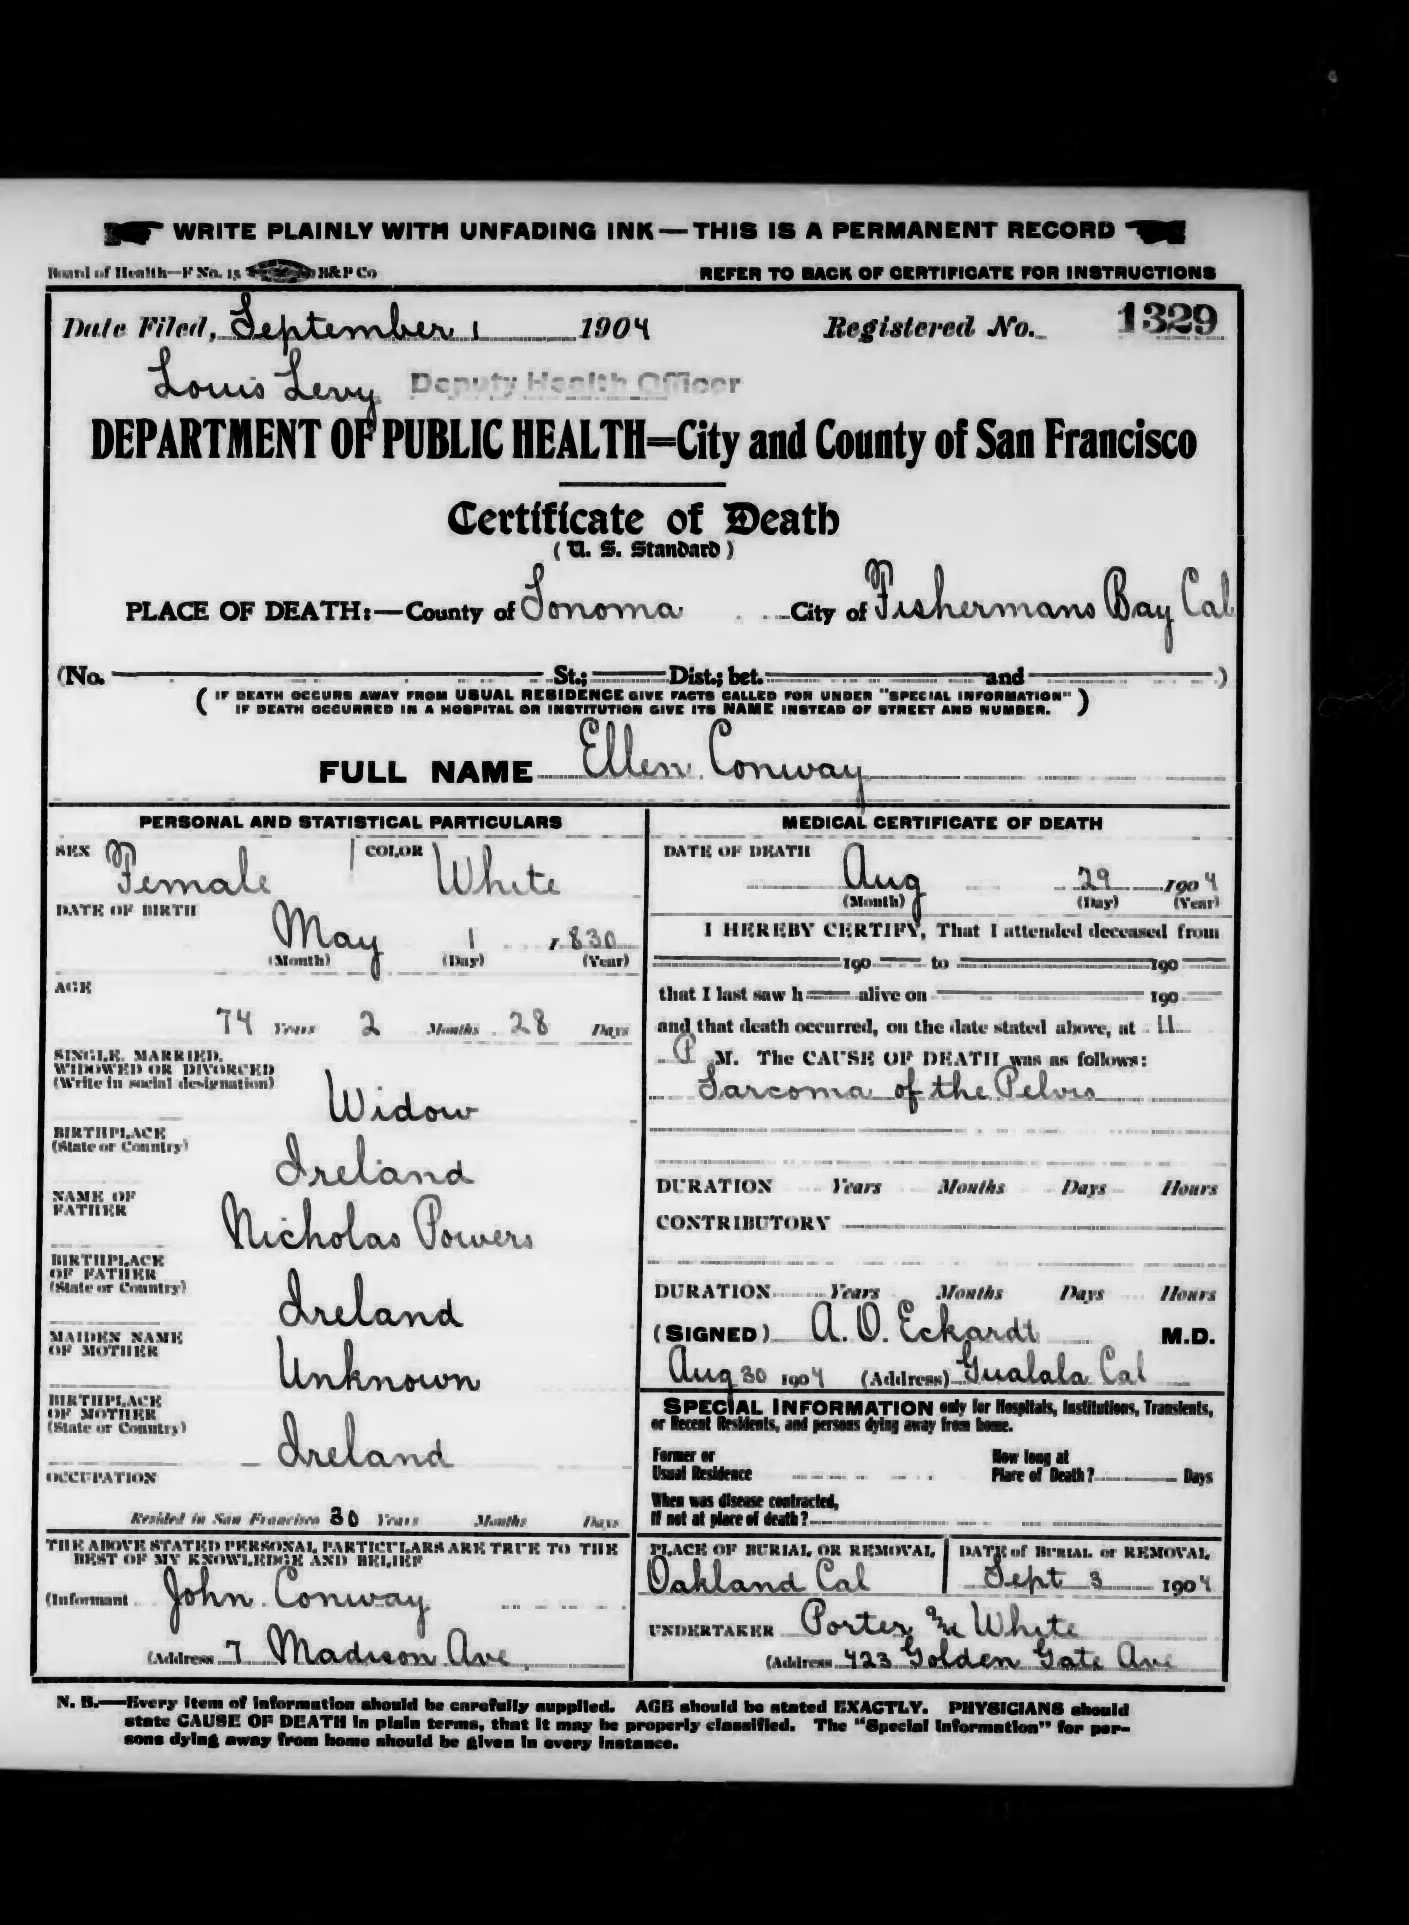 WRITE PLAINLY WITH UNFADING INK—THIS IS A PERMANENT RECORD
Board of Health—F No. 15 H&P Co
REFER TO BACK OF CERTIFICATE FOR INSTRUCTIONS
Date Filed, September 1 1904 Registered No. 1329
Louis Levy Deputy Health Officer
DEPARTMENT OF PUBLIC HEALTH=City and County of San Francisco
Certificate of Death
(U. S. Standard)
PLACE OF DEATH:—County of Sonoma City of Fishermans Bay Cal
(No. St.; Dist.; bet. and )
(IF DEATH OCCURS AWAY FROM USUAL RESIDENCE GIVE FACTS CALLED FOR UNDER "SPECIAL INFORMATION"
IF DEATH OCCURRED IN A HOSPITAL OR INSTITUTION GIVE ITS NAME INSTEAD OF STREET AND NUMBER.)
FULL NAME Ellen Conway
PERSONAL AND STATISTICAL PARTICULARS
SEX Female COLOR White
DATE OF BIRTH
May 1 1830
(Month) (Day) (Year)
AGE
74 Years 2 Months 28 Days
SINGLE, MARRIED,
WIDOWED OR DIVORCED
(Write in social designation)
Widow
BIRTHPLACE
(State or Country)
Ireland
NAME OF
FATHER
Nicholas Powers
BIRTHPLACE
OF FATHER
(State or Country)
Ireland
MAIDEN NAME
OF MOTHER
Unknown
BIRTHPLACE
OF MOTHER
(State or Country)
Ireland
OCCUPATION
Resided in San Francisco 30 Years Months Days
THE ABOVE STATED PERSONAL PARTICULARS ARE TRUE TO THE
BEST OF MY KNOWLEDGE AND BELIEF
(Informant John Conway
(Address 7 Madison Ave
MEDICAL CERTIFICATE OF DEATH
DATE OF DEATH
Aug 29 1904
(Month) (Day) (Year)
I HEREBY CERTIFY, That I attended deceased from
190 to 190
that I last saw h alive on 190
and that death occurred, on the date stated above, at 11
P M. The CAUSE OF DEATH was as follows:
Sarcoma of the Pelvis
DURATION Years Months Days Hours
CONTRIBUTORY
DURATION Years Months Days Hours
(SIGNED) A. O. Eckardt M.D.
Aug 30 1904 (Address) Gualala Cal
SPECIAL INFORMATION only for Hospitals, Institutions, Transients,
or Recent Residents, and persons dying away from home.
Former or
Usual Residence
How long at
Place of Death? Days
When was disease contracted,
If not at place of death?
PLACE OF BURIAL OR REMOVAL
Oakland Cal
DATE of BURIAL or REMOVAL
Sept 3 1904
UNDERTAKER Porter & White
(Address 423 Golden Gate Ave
N. B.—Every item of information should be carefully supplied. AGE should be stated EXACTLY. PHYSICIANS should
state CAUSE OF DEATH in plain terms, that it may be properly classified. The "Special Information" for per-
sons dying away from home should be given in every instance.